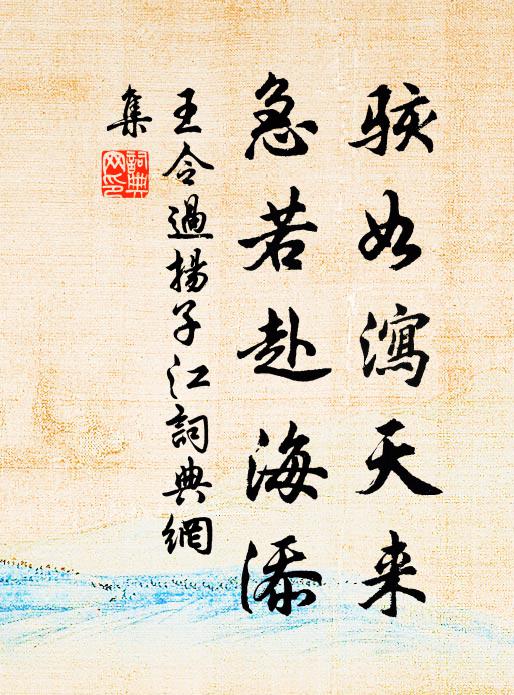 骇如瀉天来
急若赴海添
王令過揚子江詞典網
集
詞典
网印